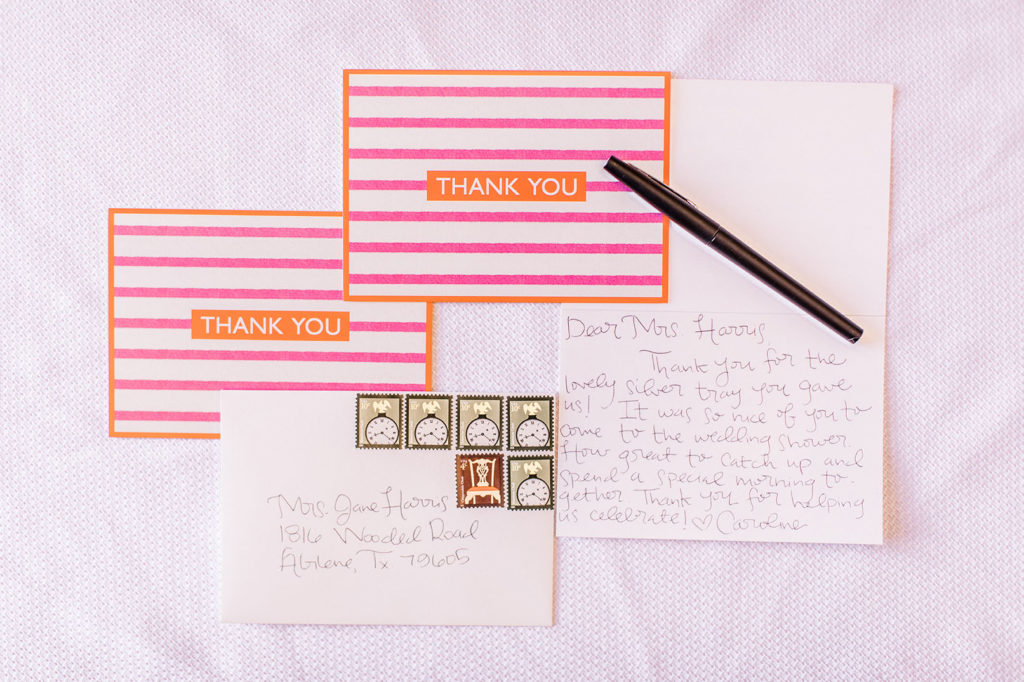 THANK YOU
THANK YOU
Dear Mrs. Harris
Thank you for the
lovely silver tray you gave
us! It was so nice of you to
come to the wedding shower.
How great to catch up and
spend a special morning to-
gether Thank you for helping
us celebrate! ♡ Caroline
Mrs. Jane Harris
1816 Wooded Road
Abilene, Tx 79605